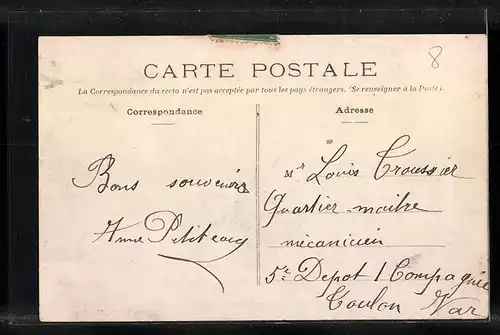 8
CARTE POSTALE
La Correspondance du recto n'est pas acceptée par tous les pays étrangers. (Se renseigner à la Poste).
Correspondance
Bons souvenirs
Adresse
Mr Louis Troussier
Quartier-maitre
mécanicien
5e Depot 1 Compagnie
Toulon Var